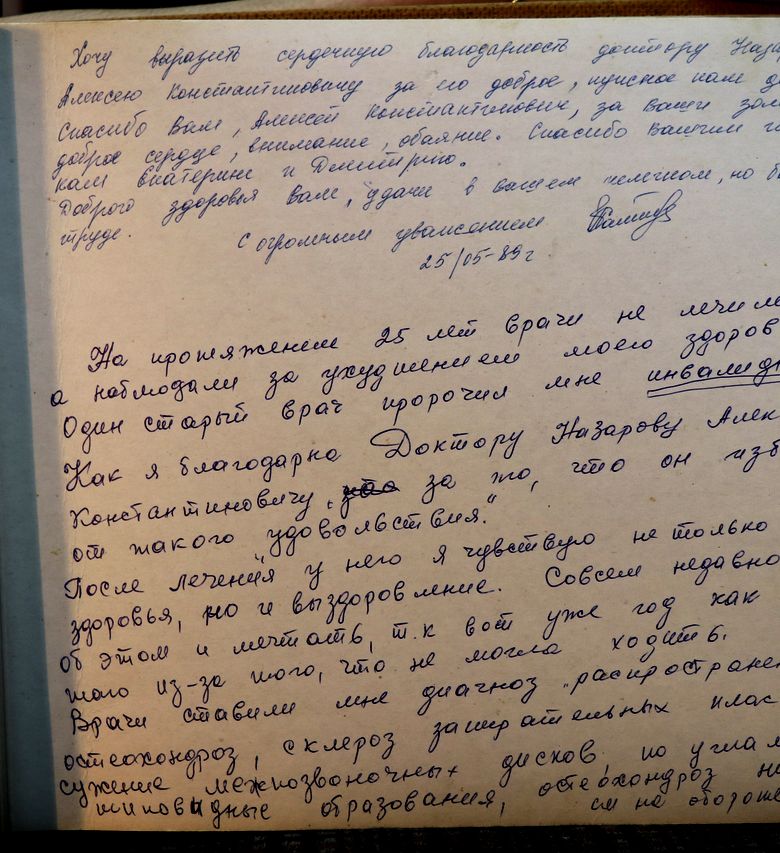 Хочу выразить сердечную благодарность доктору Наза
Алексею Константиновичу за его доброе, нужное нам д
Спасибо Вам, Алексей Константинович, за Ваши зол
доброе сердце, внимание, обаяние. Спасибо Вашим
кам Екатерине и Дмитрию.
Доброго здоровья Вам, удачи в вашем нелегком, но б
труде.
С огромным уважением
25/05-89г
На протяжении 25 лет врачи не лечил
а наблюдали за ухудшением моего здоров
Один старый врач пророчил мне инвалид
Как я благодарна Доктору Назарову Алек
Константиновичу, за то, что он изб
от такого "удовольствия".
После лечения у него я чувствую не только
здоровья, но и выздоровление. Совсем недавно
об этом и мечтать, т.к вот уже год как
того из-за того, что не могла ходить.
Врачи ставили мне диагноз "распростране
остеохондроз, склероз замыкательных плас
сужение межпозвоночных дисков, по углам
шиповидные образования, остеохондроз
см на оборот